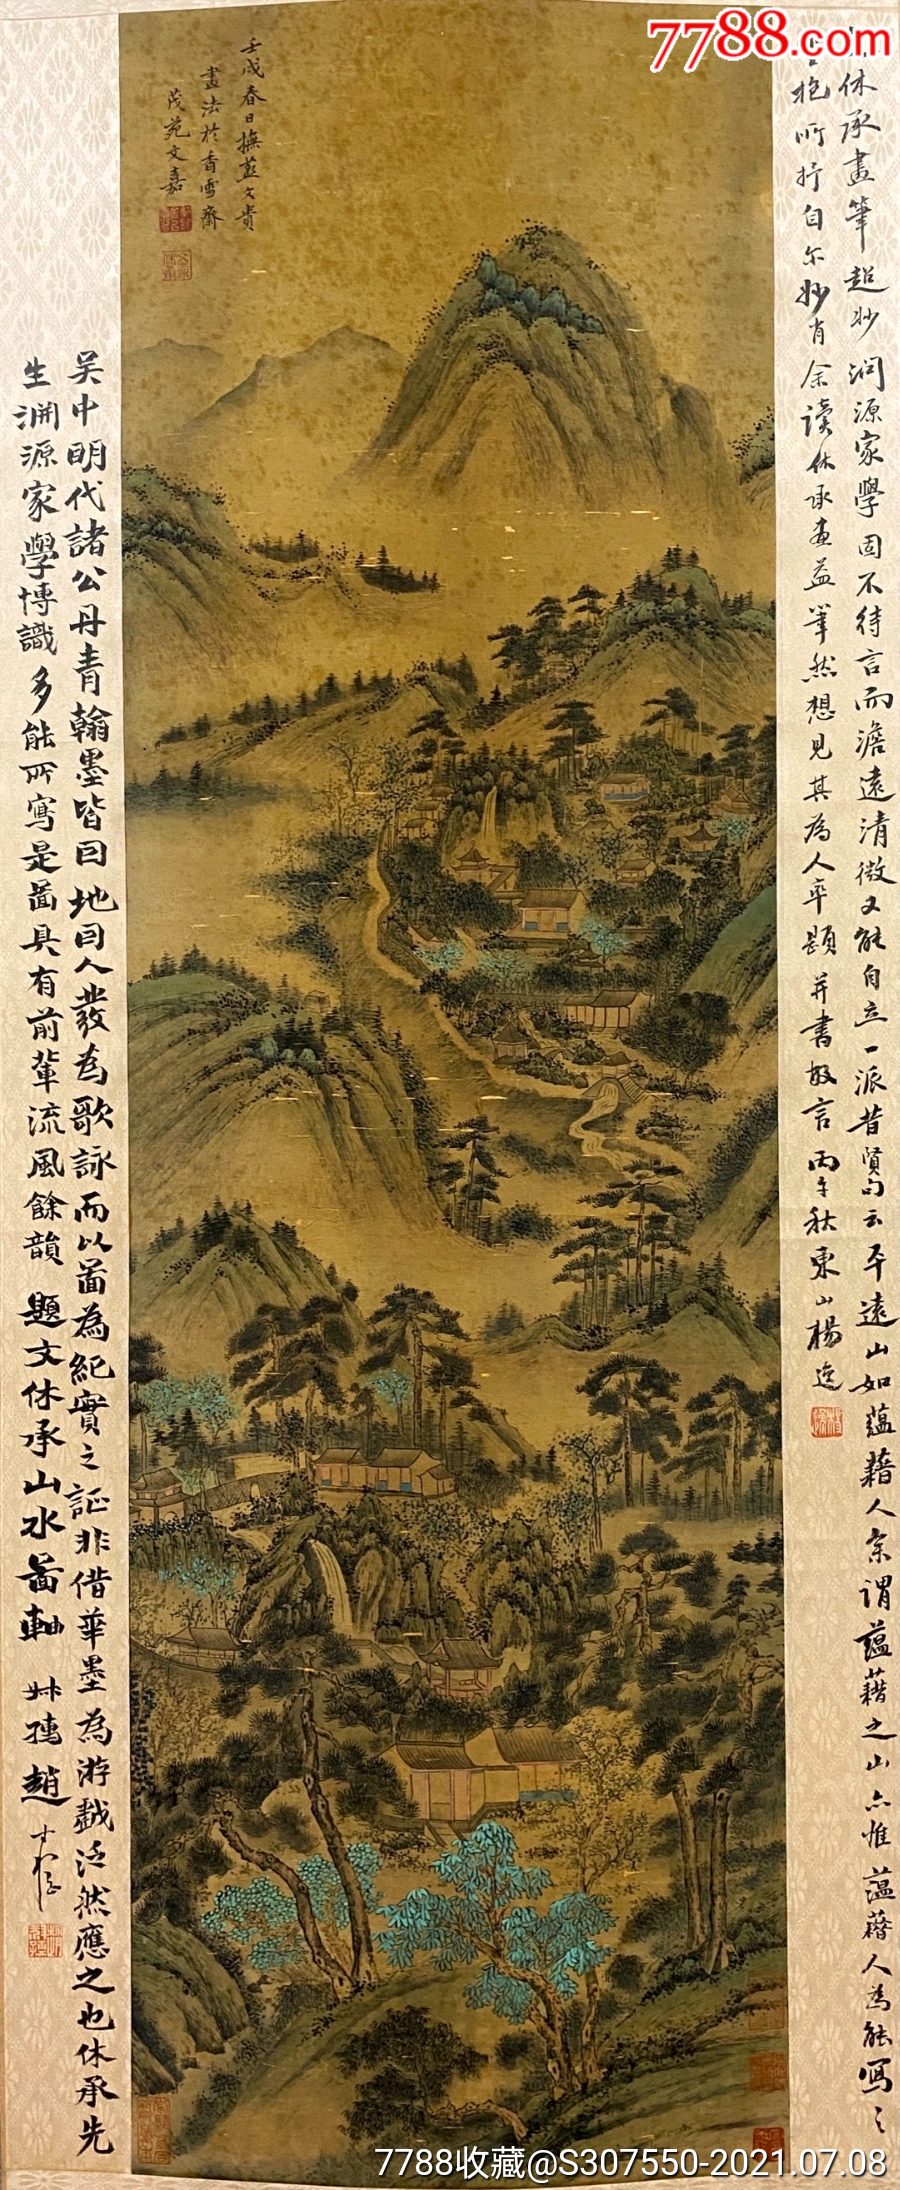 7788.com
壬戌春日撫燕文貴
畫法於香雪齋
茂苑文嘉
休承畫筆超妙淵源家學固不待言而澹遠清微又能自立一派昔賢句云平遠山如蘊藉人余謂蘊藉之山亦惟蘊藉人為能寫之
抱所抒自尔妙肖余讀休承畫益肅然想見其為人率題并書數言丙午秋東山楊逸
吳中明代諸公丹青翰墨皆因地因人發為歌詠而以圖為紀實之証非借筆墨為游戲泛然應之也休承先
生淵源家學博識多能所寫是圖具有前輩流風餘韻 題文休承山水圖軸 叔孺趙
7788收藏@S307550-2021.07.08